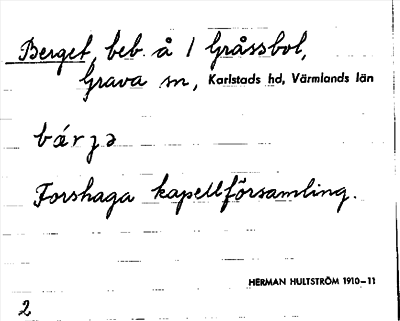 Berget, beb. å 1 Gråssbol,
Grava sn, Karlstads hd, Värmlands län
bárʒə
Forshaga kapellförsamling.
HERMAN HULTSTRÖM 1910–11
2